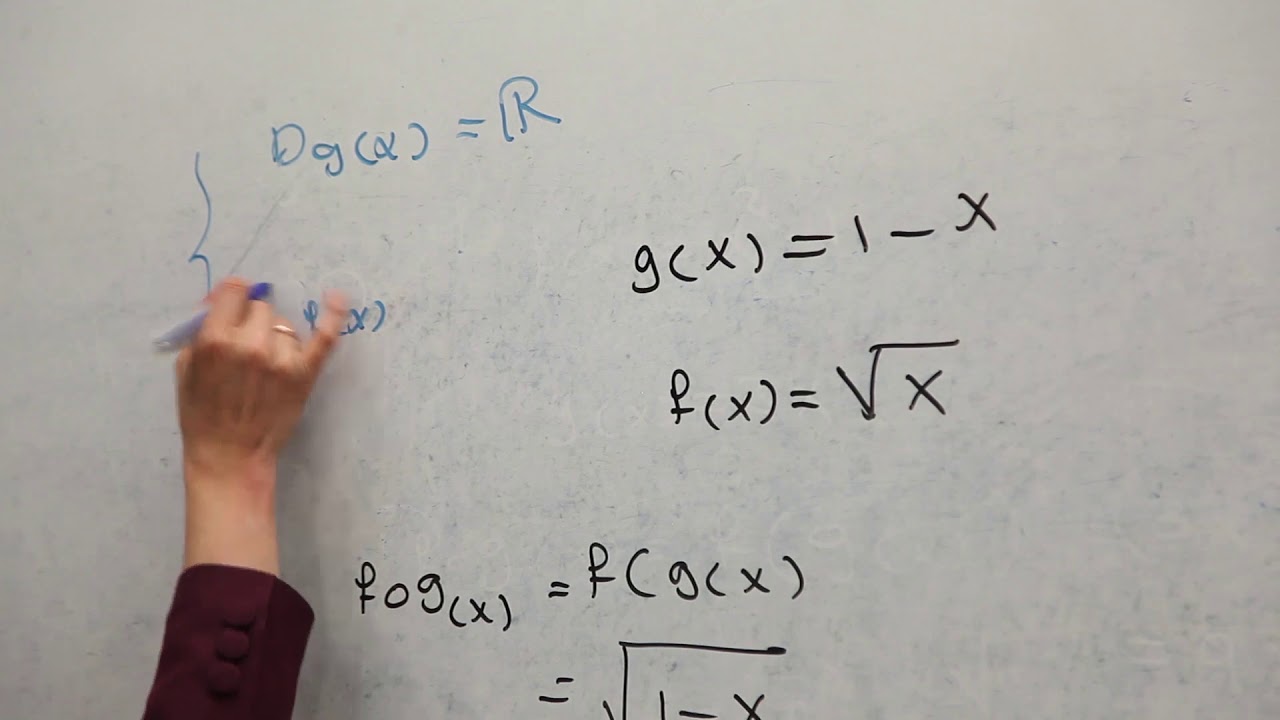 Dg(x) = ℝ
f(x)
g(x) = 1 - x
f(x) = √x
fog(x) = f(g(x)
= √1 - x